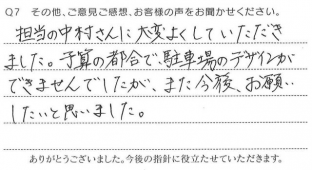 Q7 その他、ご意見ご感想、お客様の声をお聞かせください。
担当の中村さんに大変よくしていただき
ました。予算の都合で、駐車場のデザインが
できませんでしたが、また今後、お願い
したいと思いました。
ありがとうございました。今後の指針に役立たせていただきます。